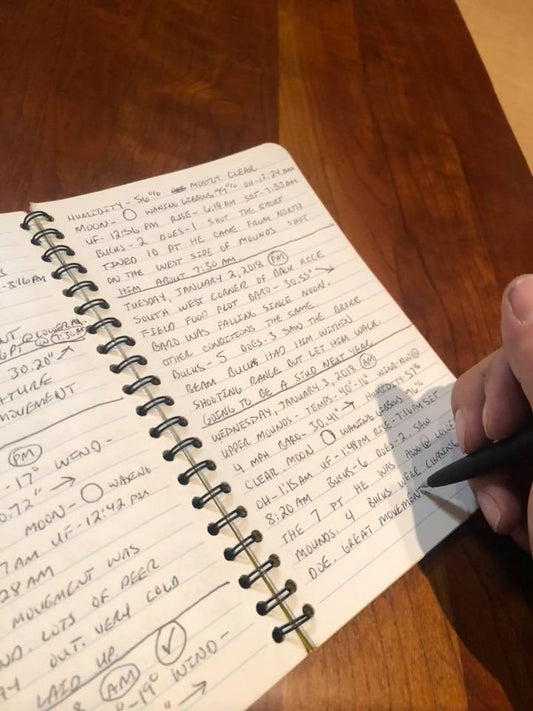 -8:16 AM
30.28" ↗
MOVEMENT
PM
-17° WIND-
0.72" →
MOON- O WAXING
7 AM UF-12:42 PM
28 AM
MOVEMENT WAS
LOTS OF DEER
OUT. VERY COLD
LAID UP
AM ✓
-19° WIND-
HUMIDITY-56% MOSTLY CLEAR
MOON- O WANING GIBBOUS 99% OH-12:29 AM
UF-12:56 PM RISE-6:19 AM SET-7:33 AM
BUCKS-2 DOES-1 SHOT THE SHORT
TINED 10 PT HE CAME FROM NORTH
ON THE WEST SIDE OF MOUNDS SHOT
HIM ABOUT 7:30 AM.
TUESDAY, JANUARY 2, 2018 PM
SOUTH WEST CORNER OF BACK RICE
FIELD FOOD PLOT BARO-30.55" →
BARO WAS FALLING SINCE NOON.
OTHER CONDITIONS THE SAME.
BUCKS-5 DOES-3 SAW THE BROKE
BEAM BUCK HAD HIM WITHIN
SHOOTING RANGE BUT LET HIM WALK.
GOING TO BE A STUD NEXT YEAR.
WEDNESDAY, JANUARY 3, 2018 AM
UPPER MOUNDS- TEMPS-40°-16° WIND-NW@
4 MPH BARO-30.41" → HUMIDITY-57%
CLEAR MOON O WANING GIBBOUS
OH-1:15 AM UF-1:48 PM RISE-7:16 PM SET
8:20 AM BUCKS-6 DOES-2. SAW
THE 7 PT HE WAS AWOL @ LOWER
MOUNDS. 4 BUCKS WERE CHASING
DOE. GREAT MOVEMENT